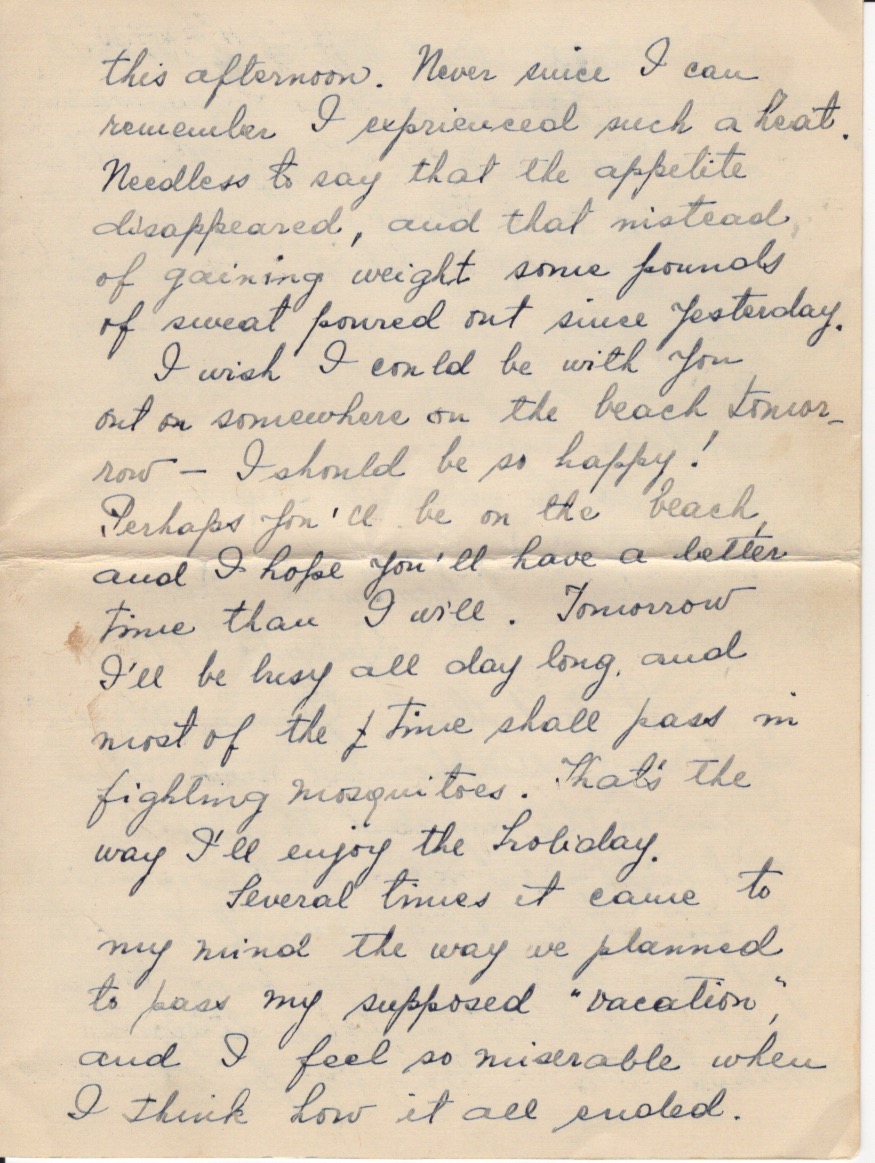 this afternoon. Never since I can
remember I exprienced such a heat.
Needless to say that the appetite
disappeared, and that instead,
of gaining weight some pounds
of sweat poured out since yesterday.
I wish I could be with you
out on somewhere on the beach tomor-
row – I should be so happy!
Perhaps you'll be on the beach,
and I hope you'll have a better
time than I will. Tomorrow
I'll be busy all day long, and
most of the time shall pass in
fighting mosquitoes. That's the
way I'll enjoy the holiday.
Several times it came to
my mind the way we planned
to pass my supposed "vacation",
and I feel so miserable when
I think how it all ended.